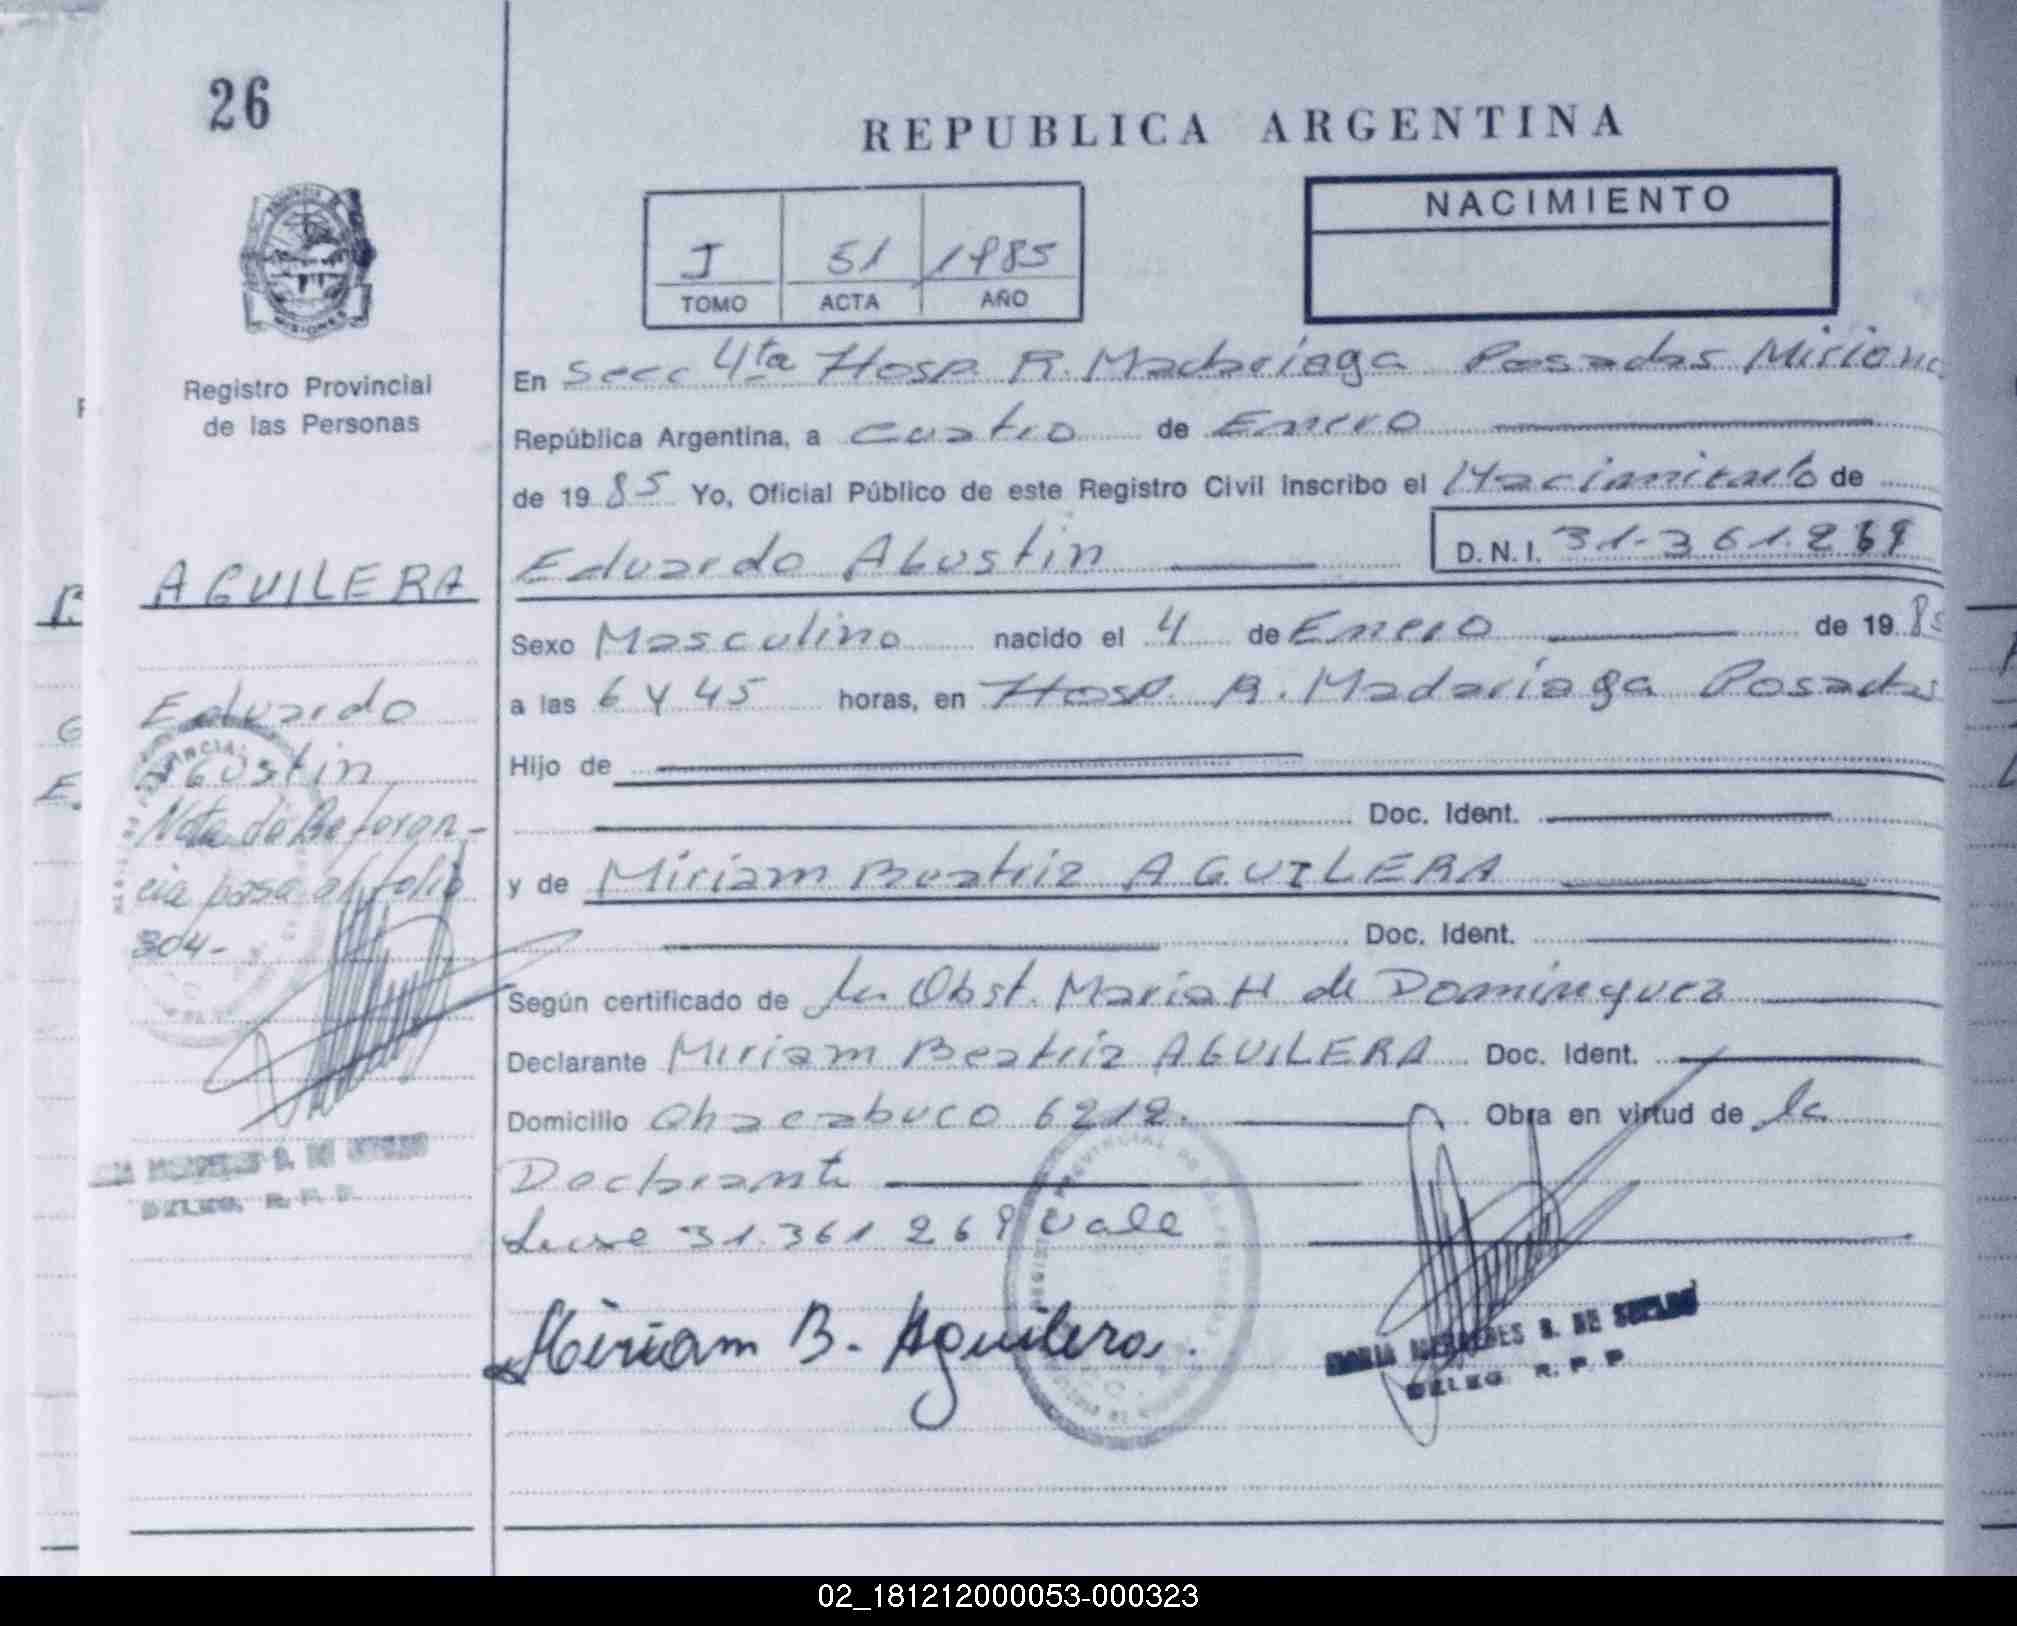 26
REPUBLICA ARGENTINA
NACIMIENTO
I 51 1985
TOMO ACTA AÑO
MISIONES
Registro Provincial
de las Personas
En Secc 4ta Hosp. R. Madariaga Posadas Misiones
República Argentina, a cuatro de Enero
de 1985 Yo, Oficial Público de este Registro Civil inscribo el Nacimiento de
AGUILERA
Eduardo Agustin D.N.I. 31.361.269
Sexo Masculino nacido el 4 de Enero de 1985
Eduardo
a las 6 y 45 horas, en Hosp. R. Madariaga Posadas
Agustin
Hijo de
Nota de Referen-
Doc. Ident.
cia pasa al folio
y de Miriam Beatriz AGUILERA
304-
Doc. Ident.
Según certificado de la Obst. Maria H de Dominguez
Declarante Miriam Beatriz AGUILERA Doc. Ident.
Domicilio Chacabuco 6212. Obra en virtud de la
Declarante
DELEG. R. P. P.
Léase 31.361 269 Vale
Miriam B. Aguilera.
MARIA MERCEDES S. DE
DELEG. R. P. P.
02_181212000053-000323